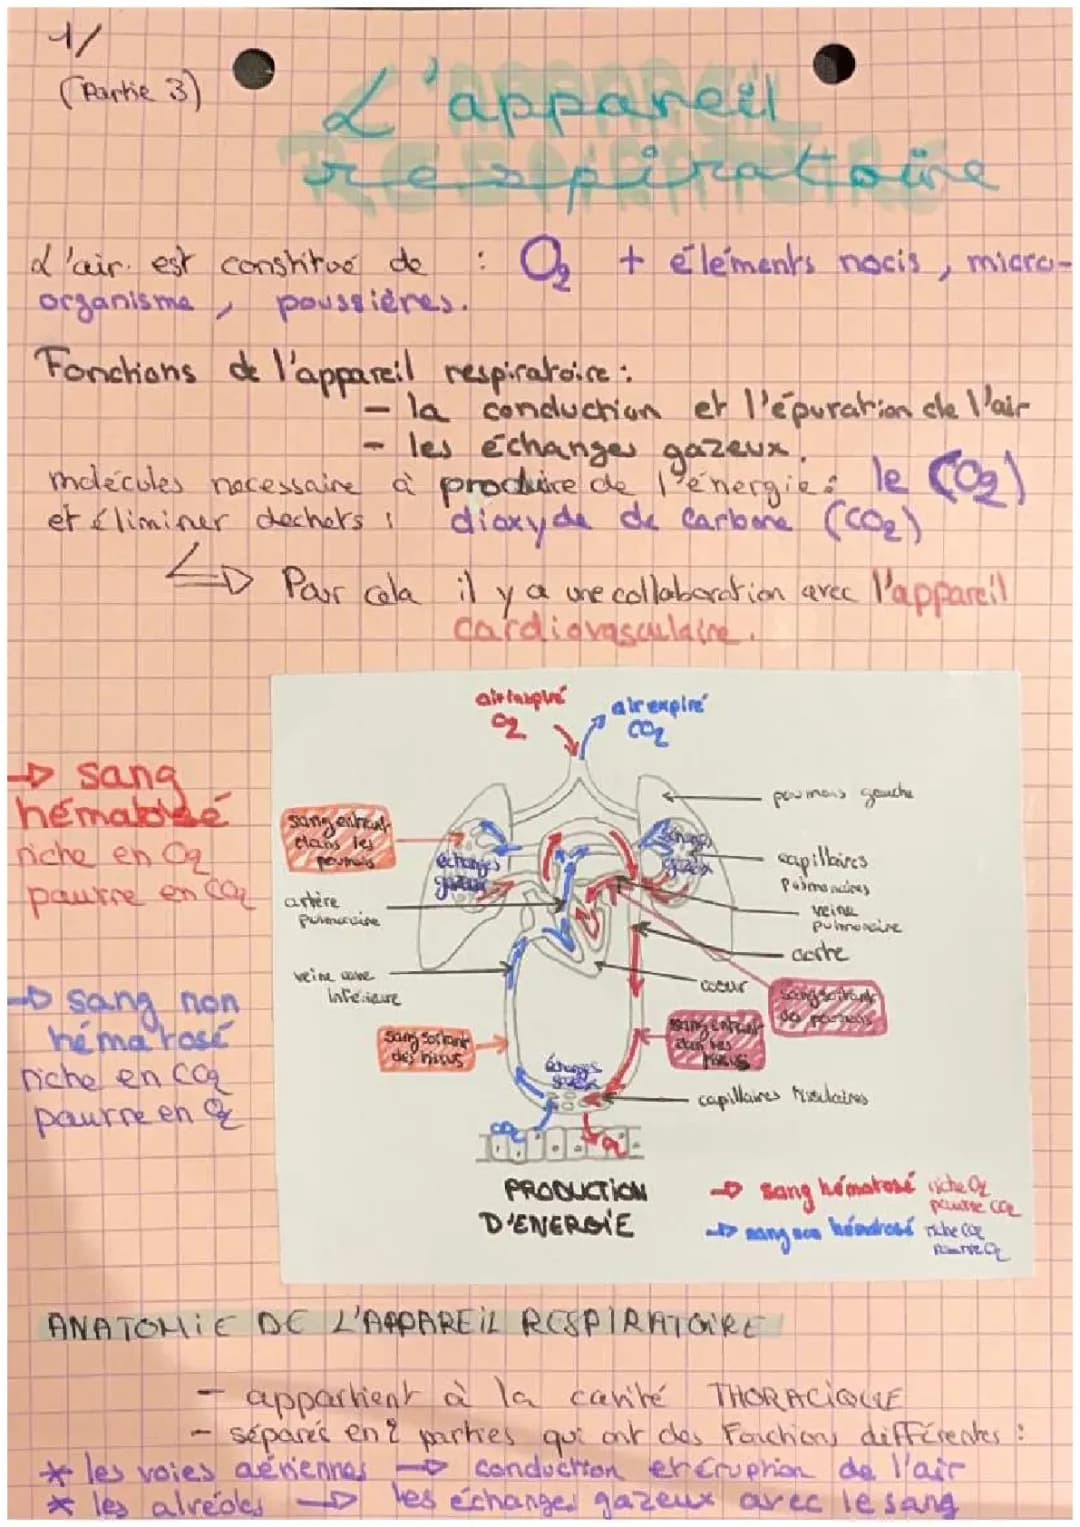 1/
(Partie 3)
L'appareil
respiratoire
L'air est constitué de : O2 + éléments nocis, micro-
organisme, poussières.
Fonctions de l'appareil respiratoire :
- la conduction et l'épuration de l'air
- les échanges gazeux.
molécules necessaire à produire de l'énergie : le (O2)
et éliminer dechets : dioxyde de carbone (CO2)
Pour cela il y a une collaboration avec l'appareil
cardiovasculaire.
air inspiré
O2
air expiré
CO2
→ sang
hématosé
riche en O2
pauvre en CO2
→ sang non
hématosé
riche en CO2
pauvre en O2
sang entrant
dans les
poumons
échanges
gazeux
échanges
gazeux
poumons gauche
capillaires
Pulmonaires
veine
pulmonaire
artère
pulmonaire
aorte
veine cave
inférieure
coeur
sang sortant
des poumons
sang sortant
des tissus
sang entrant
dans les
tissus
échanges
gazeux
capillaires tissulaires
CO2
O2
PRODUCTION
D'ENERGIE
→ sang hématosé riche O2
pauvre CO2
→ sang non hématosé riche CO2
pauvre O2
ANATOMIE DE L'APPAREIL RESPIRATOIRE
- appartient à la cavité THORACIQUE
- séparés en 2 parties qui ont des Fonctions différentes :
* les voies aériennes → conduction et éruption de l'air
* les alvéoles → les échanges gazeux avec le sang